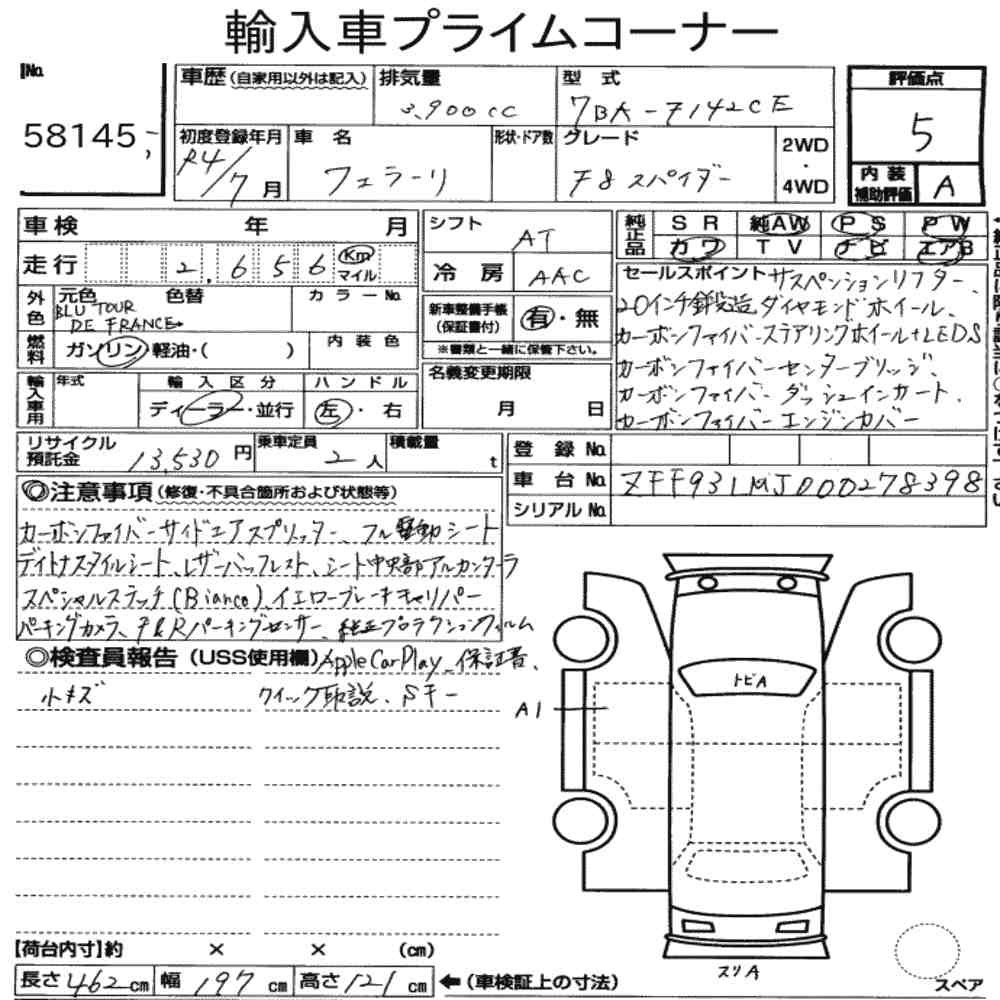 輸入車プライムコーナー
No.
58145
車歴(自家用以外は記入)
排気量
3,900cc
型式
7BA-F142CE
評価点
5
初度登録年月
R4/7月
車名
フェラーリ
形状・ドア数
グレード
F8 スパイダー
2WD
・
4WD
内装
補助評価
A
車検 年 月
走行 2,656 Km
マイル
外色
元色 色替 カラーNo.
BLU TOUR
DE FRANCE
燃料
ガソリン・軽油・( )
内装色
輸入車用
年式
輸入区分
ディーラー・並行
ハンドル
左・右
シフト AT
冷房 AAC
新車整備手帳
(保証書付)
有・無
※書類と一緒に保管下さい。
名義変更期限
月 日
純正品
SR 純AW PS PW
カワ TV ナビ エアB
セールスポイント サスペンションリフター、
20インチ鍛造ダイヤモンドホイール、
カーボンファイバーステアリングホイール+LEDS
カーボンファイバーセンターブリッジ、
カーボンファイバーダッシュインサート、
カーボンファイバーエンジンカバー
リサイクル
預託金
13,530円
乗車定員
2人
積載量
t
登録No.
車台No. ZFF93LMJ000278398
シリアルNo.
◎注意事項(修復・不具合箇所および状態等)
カーボンファイバーサイドエアスプリッター、フル電動シート
デイトナスタイルシート、レザーヘッドレスト、シート中央部アルカンターラ
スペシャルステッチ(Bianco)、イエローブレーキキャリパー
パーキングカメラ、F&Rパーキングセンサー、純正プロテクションフィルム
◎検査員報告(USS使用欄) AppleCarPlay、保証書、
小キズ
クイック取説、Sキー
トビA
A1
スリA
スペア
【荷台内寸】約 × × (cm)
長さ462cm 幅197cm 高さ121cm
←(車検証上の寸法)